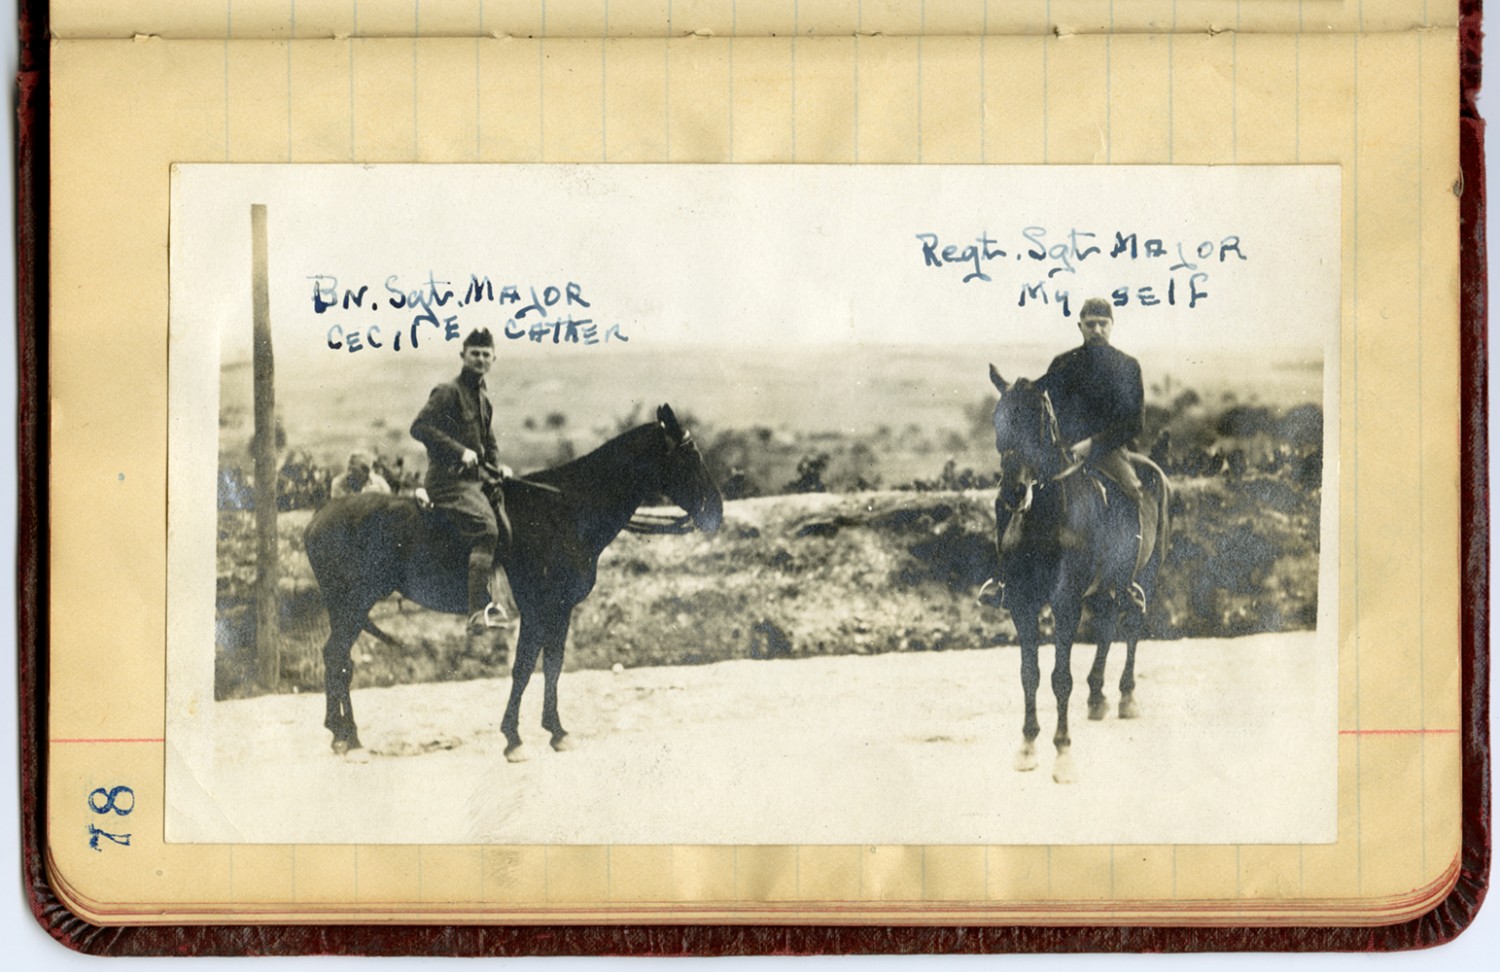 Bn. Sgt. Major
Cecil E Cather
Regt. Sgt. Major
My self
78